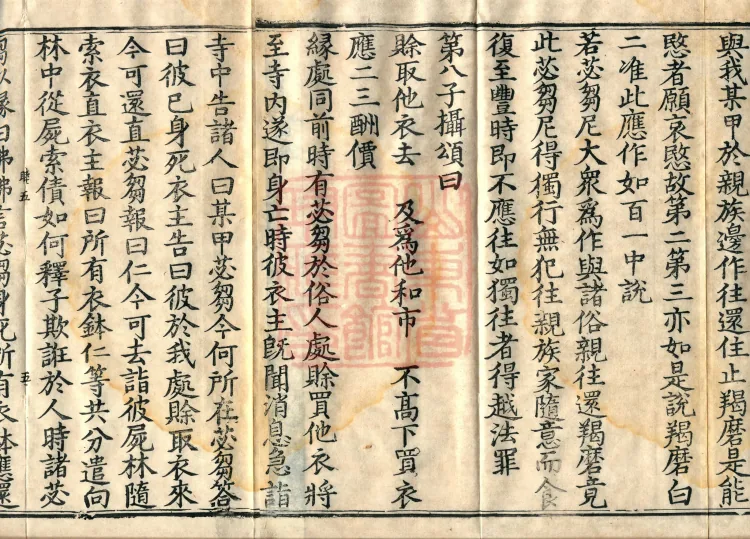 與我某甲於親族邊作往還住止羯磨是能
愍者願哀愍故第二第三亦如是說羯磨白
二准此應作如百一中說
若苾芻尼大衆爲作與諸俗親往還羯磨竟
此苾芻尼得獨行無犯往親族家隨意而食
復至豐時即不應往如獨往者得越法罪
第八子攝頌曰
賒取他衣去 及爲他和市 不高下買衣
應二三酬價
緣處同前時有苾芻於俗人處賒買他衣將
至寺内遂即身亡時彼衣主旣聞消息急詣
寺中告諸人曰某甲苾芻今何所在苾芻答
曰彼已身死衣主告曰彼於我處賒取衣來
今可還直苾芻報曰仁今可去詣彼屍林隨
索衣直衣主報曰所有衣鉢仁等共分遣向
林中從屍索債如何釋子欺誑於人時諸苾
芻以緣白佛佛言苾芻身死所有衣鉢應還